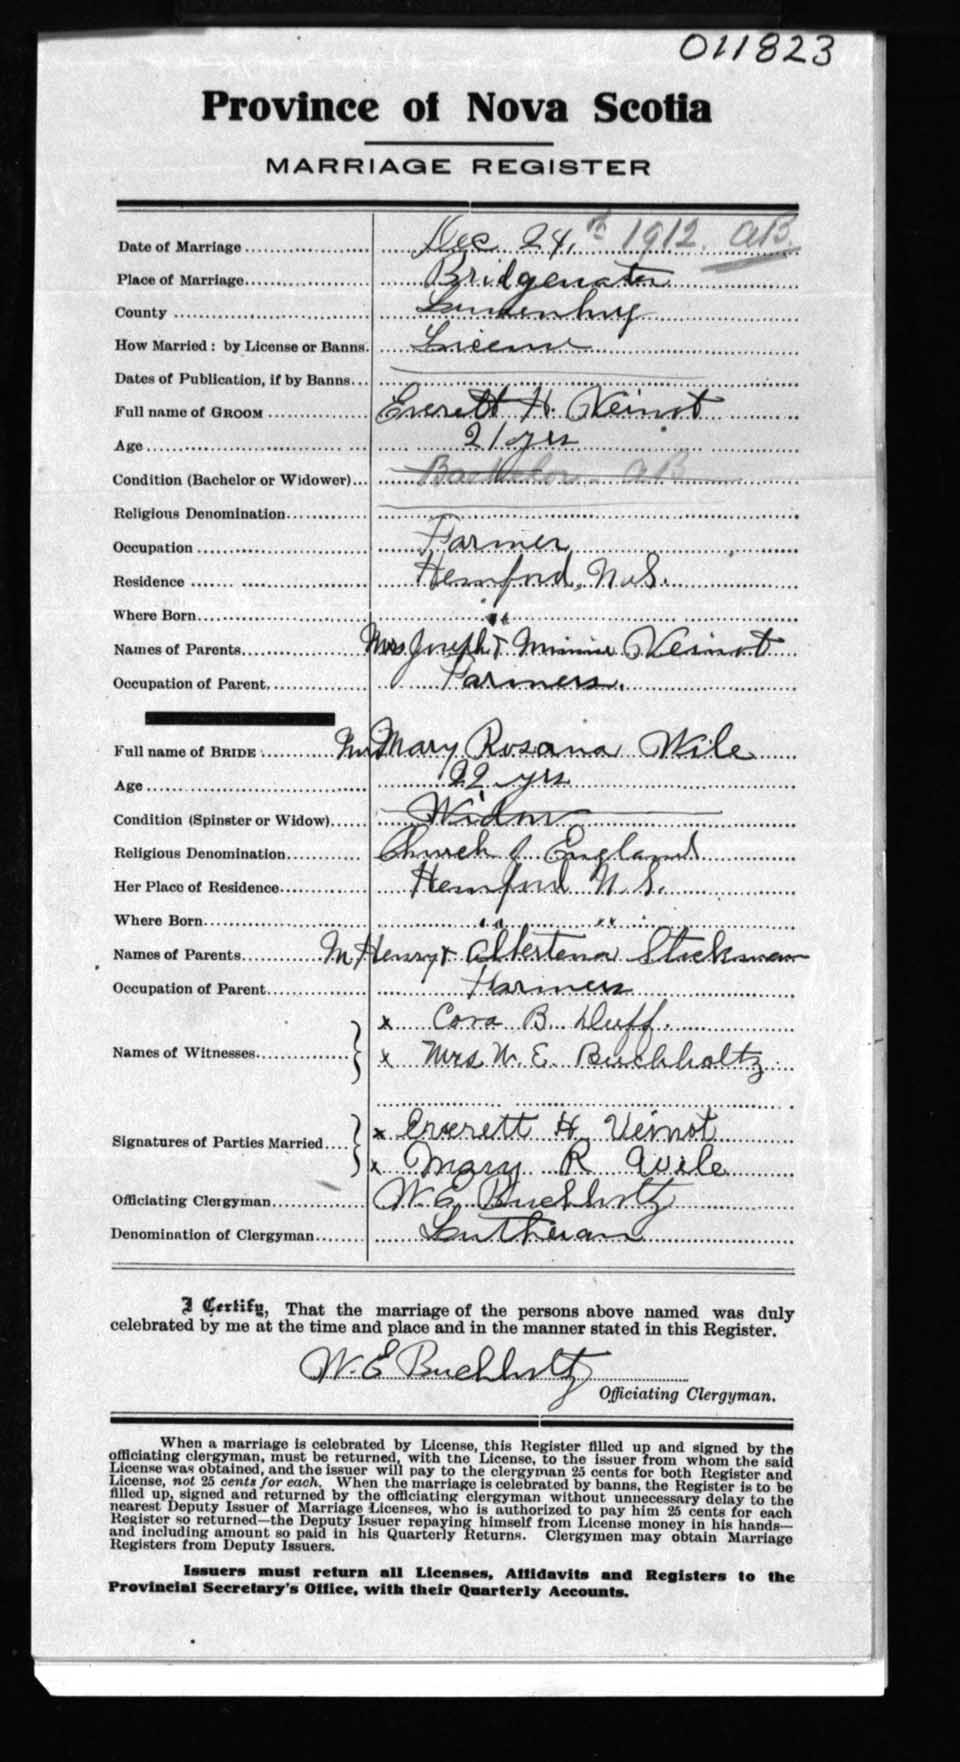 011823
Province of Nova Scotia
MARRIAGE REGISTER
Date of Marriage Dec 24,th 1912. AB.
Place of Marriage Bridgewater
County Lunenburg
How Married: by License or Banns. License
Dates of Publication, if by Banns
Full name of GROOM Everett H. Veinot
Age 21 yrs
Condition (Bachelor or Widower) Bachelor. AB
Religious Denomination
Occupation Farmer
Residence Hemford, N.S.
Where Born " "
Names of Parents Joseph & Minnie Veinot
Occupation of Parent Farmers.
Full name of BRIDE Mary Rosana Wile
Age 22 yrs
Condition (Spinster or Widow) Widow
Religious Denomination Church of England
Her Place of Residence Hemford N.S.
Where Born " " " "
Names of Parents Henry & Albertena
Occupation of Parent Farmers
x Cora B. Duff.
Names of Witnesses
x Mrs W. E. Buchholtz
x Everett H Veinot
Signatures of Parties Married
x Mary R Wile
Officiating Clergyman W. E. Buchholtz
Denomination of Clergyman Lutheran
I Certify, That the marriage of the persons above named was duly
celebrated by me at the time and place and in the manner stated in this Register.
W. E Buchholtz
Officiating Clergyman.
When a marriage is celebrated by License, this Register filled up and signed by the
officiating clergyman, must be returned, with the License, to the issuer from whom the said
License was obtained, and the issuer will pay to the clergyman 25 cents for both Register and
License, not 25 cents for each. When the marriage is celebrated by banns, the Register is to be
filled up, signed and returned by the officiating clergyman without unnecessary delay to the
nearest Deputy Issuer of Marriage Licenses, who is authorized to pay him 25 cents for each
Register so returned—the Deputy Issuer repaying himself from License money in his hands—
and including amount so paid in his Quarterly Returns. Clergymen may obtain Marriage
Registers from Deputy Issuers.
Issuers must return all Licenses, Affidavits and Registers to the
Provincial Secretary's Office, with their Quarterly Accounts.